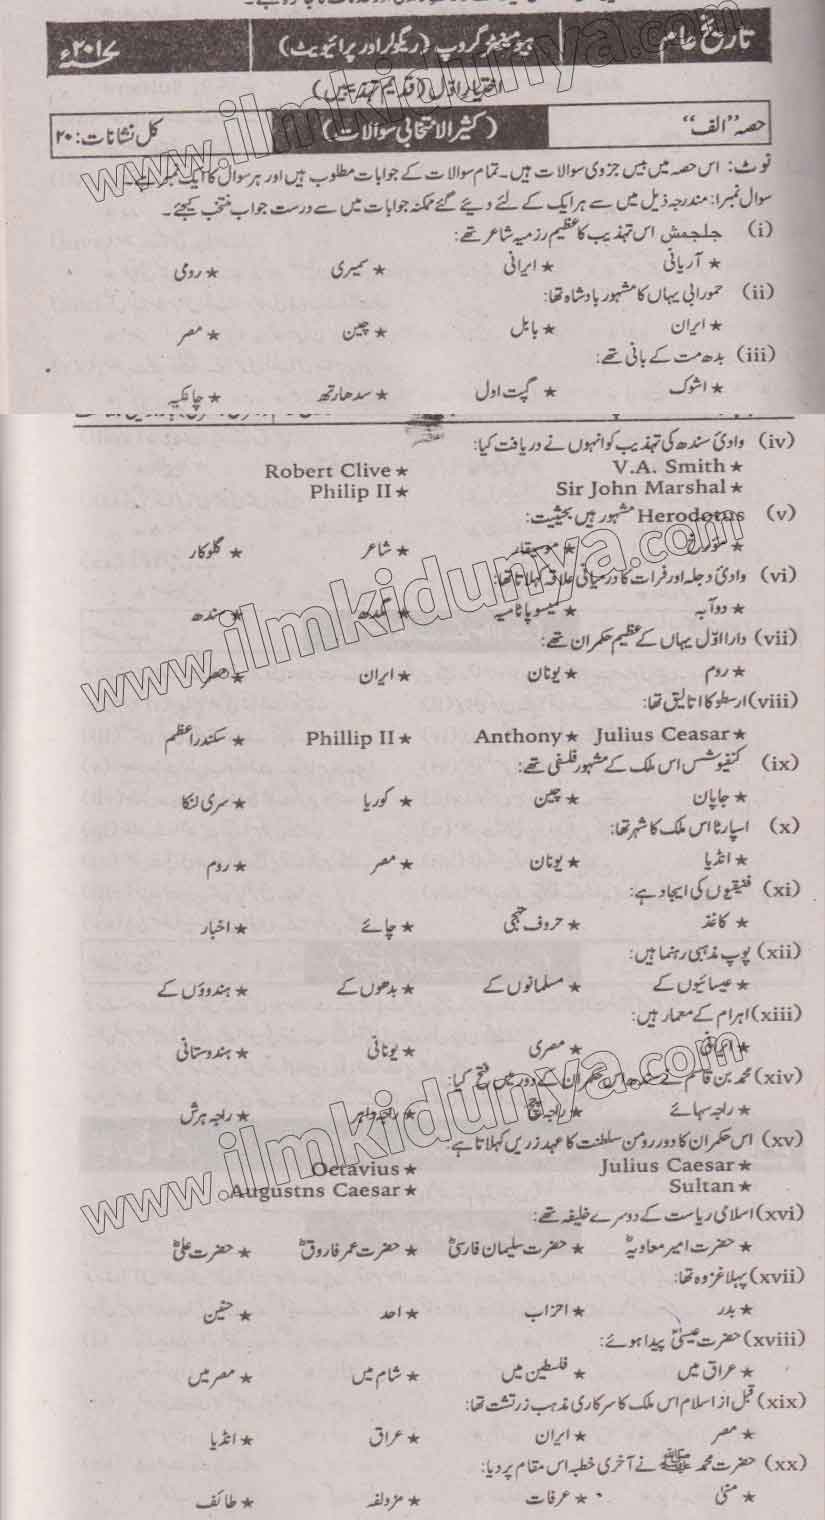 تاریخ عام
ہیومینٹیز گروپ (ریگولر اور پرائیویٹ)
۲۰۱۷ء
اختیار اوّل (قدیم تہذیبیں)
حصہ "الف"
(کثیر الانتخابی سوالات)
کل نشانات: ۲۰
نوٹ: اس حصہ میں بیس جزوی سوالات ہیں۔ تمام سوالات کے جوابات مطلوب ہیں اور ہر سوال کا ایک نمبر ہے۔
سوال نمبر۱: مندرجہ ذیل میں سے ہر ایک کے لئے دیئے گئے ممکنہ جوابات میں سے درست جواب منتخب کیجئے۔
(i) جلجمش اس تہذیب کا عظیم رزمیہ شاعر تھے:
★ آریائی ★ ایرانی ★ سمیری ★ رومی
(ii) حمورابی یہاں کا مشہور بادشاہ تھا:
★ ایران ★ بابل ★ چین ★ مصر
(iii) بدھ مت کے بانی تھے:
★ اشوک ★ گپت اول ★ سدھارتھ ★ چانکیہ
(iv) وادئ سندھ کی تہذیب کو انہوں نے دریافت کیا:
★ V.A. Smith ★ Robert Clive
★ Sir John Marshal ★ Philip II
(v) Herodotus مشہور ہیں بحیثیت:
★ مورخ ★ موسیقار ★ شاعر ★ گلوکار
(vi) وادئ دجلہ اور فرات کا درمیانی علاقہ کہلاتا تھا:
★ دوآبہ ★ میسوپاٹامیہ ★ گندھ ★ سندھ
(vii) دارا اوّل یہاں کے عظیم حکمران تھے:
★ روم ★ یونان ★ ایران ★ مصر
(viii) ارسطو کا اتالیق تھا:
★ Julius Ceasar ★ Anthony ★ Phillip II ★ سکندر اعظم
(ix) کنفیوشس اس ملک کے مشہور فلسفی تھے:
★ جاپان ★ چین ★ کوریا ★ سری لنکا
(x) اسپارٹا اس ملک کا شہر تھا:
★ انڈیا ★ یونان ★ مصر ★ روم
(xi) فنیقیوں کی ایجاد ہے:
★ کاغذ ★ حروف تہجی ★ چائے ★ اخبار
(xii) پوپ مذہبی رہنما ہیں:
★ عیسائیوں کے ★ مسلمانوں کے ★ بدھوں کے ★ ہندوؤں کے
(xiii) اہرام کے معمار ہیں:
★ ایرانی ★ مصری ★ یونانی ★ ہندوستانی
(xiv) محمد بن قاسم نے سندھ اس حکمران کے دور میں فتح کیا:
★ راجہ سہائے ★ راجہ چچ ★ راجہ داہر ★ راجہ ہرش
(xv) اس حکمران کا دور رومن سلطنت کا عہد زریں کہلاتا ہے:
★ Julius Caesar ★ Octavius
★ Sultan ★ Augustns Caesar
(xvi) اسلامی ریاست کے دوسرے خلیفہ تھے:
★ حضرت امیر معاویہؓ ★ حضرت سلیمان فارسیؓ ★ حضرت عمر فاروقؓ ★ حضرت علیؓ
(xvii) پہلا غزوہ تھا:
★ بدر ★ احزاب ★ احد ★ حنین
(xviii) حضرت عیسیٰؑ پیدا ہوئے:
★ عراق میں ★ فلسطین میں ★ شام میں ★ مصر میں
(xix) قبل از اسلام اس ملک کا سرکاری مذہب زرتشت تھا:
★ مصر ★ ایران ★ عراق ★ انڈیا
(xx) حضرت محمد ﷺ نے آخری خطبہ اس مقام پر دیا:
★ منیٰ ★ عرفات ★ مزدلفہ ★ طائف
www.ilmkidunya.com
www.ilmkidunya.com
www.ilmkidunya.com